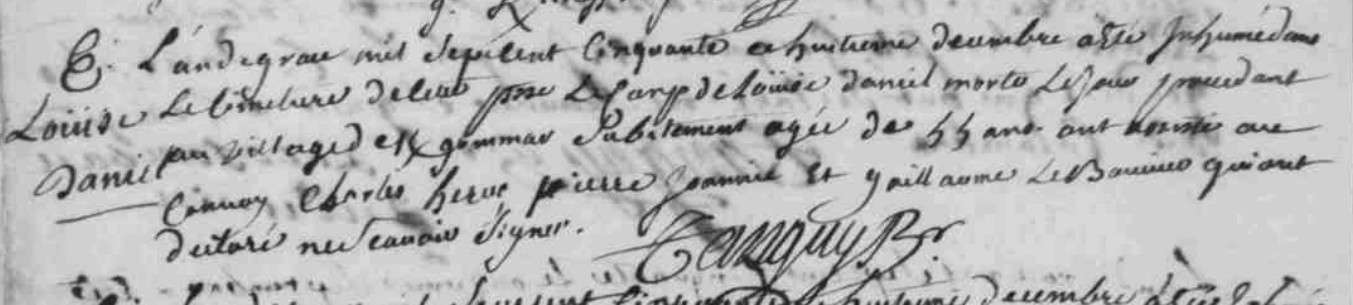 E. L'an de grace mil Sept cent Cinquante ce huitieme decembre a Eté Inhumé dans
Louise Daniel
Le Cimetiere de cette pse Le Corps de Louise daniel morte Le jour precedant
au village de subitement agée de 55 ans. ont assisté au
Convoy Charles herve pierre Joannic Et guillaume Le qui ont
declaré ne scavoir signer.
Tanguy Br
mil Sept cent Cinquante Le huitieme decembre